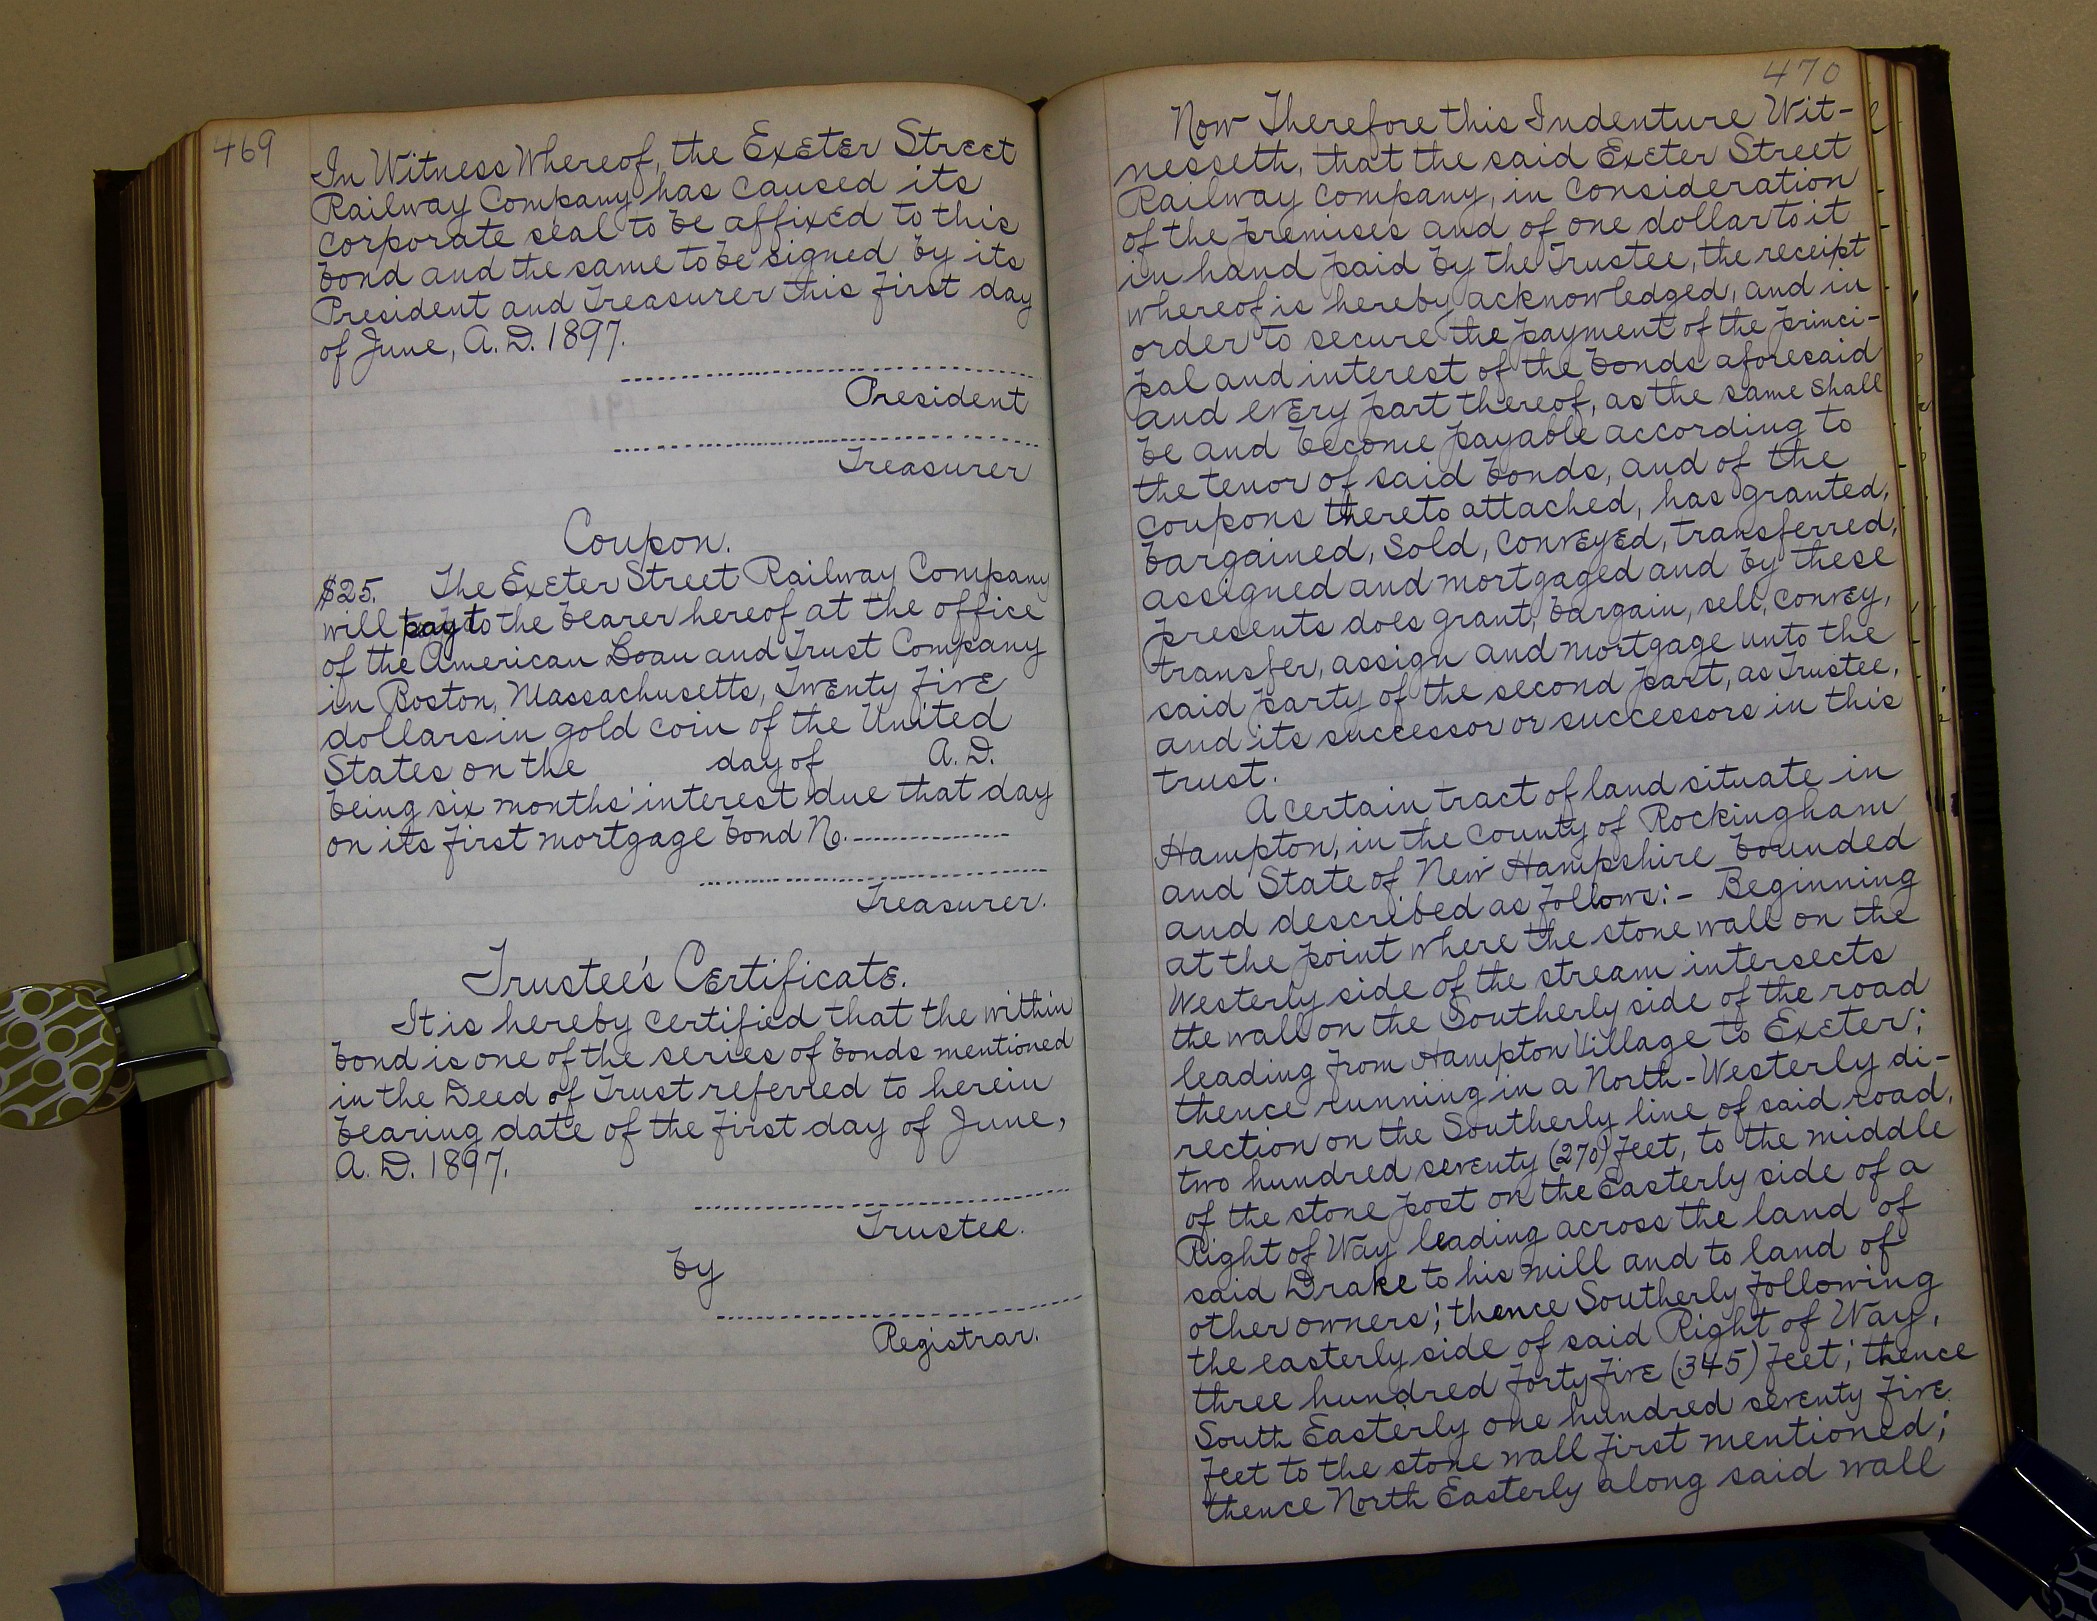 469
In Witness Whereof, the Exeter Street
Railway Company has caused its
corporate seal to be affixed to this
bond and the same to be signed by its
President and Treasurer this first day
of June, A.D. 1897.
President
Treasurer
Coupon.
$25. The Exeter Street Railway Company
will pay to the bearer hereof at the office
of the American Loan and Trust Company
in Boston, Massachusetts, Twenty Five
dollars in gold coin of the United
States on the day of A.D.
being six months' interest due that day
on its first mortgage bond No.
Treasurer.
Trustee's Certificate.
It is hereby certified that the within
bond is one of the series of bonds mentioned
in the Deed of Trust referred to herein
bearing date of the first day of June,
A.D. 1897.
Trustee.
by
Registrar.
470
Now Therefore this Indenture Wit-
nesseth, that the said Exeter Street
Railway Company, in consideration
of the premises and of one dollar to it
in hand paid by the Trustee, the receipt
whereof is hereby acknowledged, and in
order to secure the payment of the princi-
pal and interest of the bonds aforesaid
and every part thereof, as the same shall
be and become payable according to
the tenor of said bonds, and of the
coupons thereto attached, has granted,
bargained, sold, conveyed, transferred,
assigned and mortgaged and by these
presents does grant, bargain, sell, convey,
transfer, assign and mortgage unto the
said party of the second part, as Trustee,
and its successor or successors in this
trust.
A certain tract of land situate in
Hampton, in the County of Rockingham
and State of New Hampshire bounded
and described as follows:- Beginning
at the point where the stone wall on the
Westerly side of the stream intersects
the wall on the Southerly side of the road
leading from Hampton Village to Exeter;
thence running in a North-Westerly di-
rection on the Southerly line of said road,
two hundred seventy (270) feet, to the middle
of the stone post on the Easterly side of a
Right of Way leading across the land of
said Drake to his mill and to land of
other owners; thence Southerly following
the easterly side of said Right of Way,
three hundred forty five (345) feet; thence
South Easterly one hundred seventy five
feet to the stone wall first mentioned;
thence North Easterly along said wall